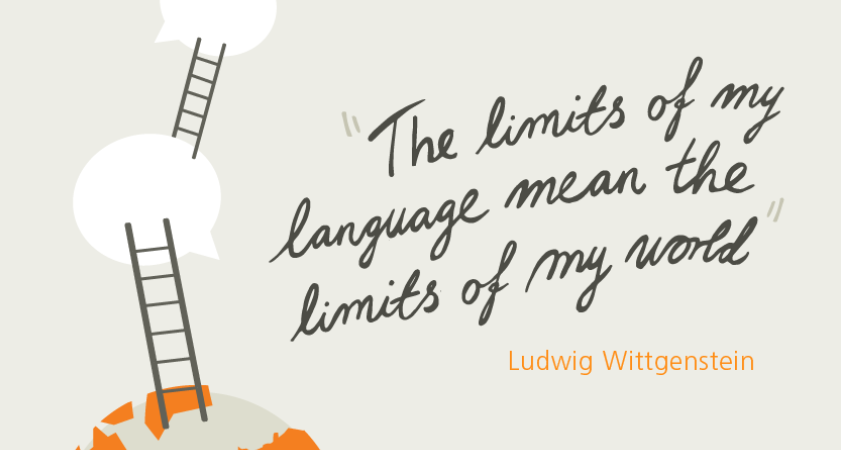 "The limits of my
language mean the
limits of my world"
Ludwig Wittgenstein